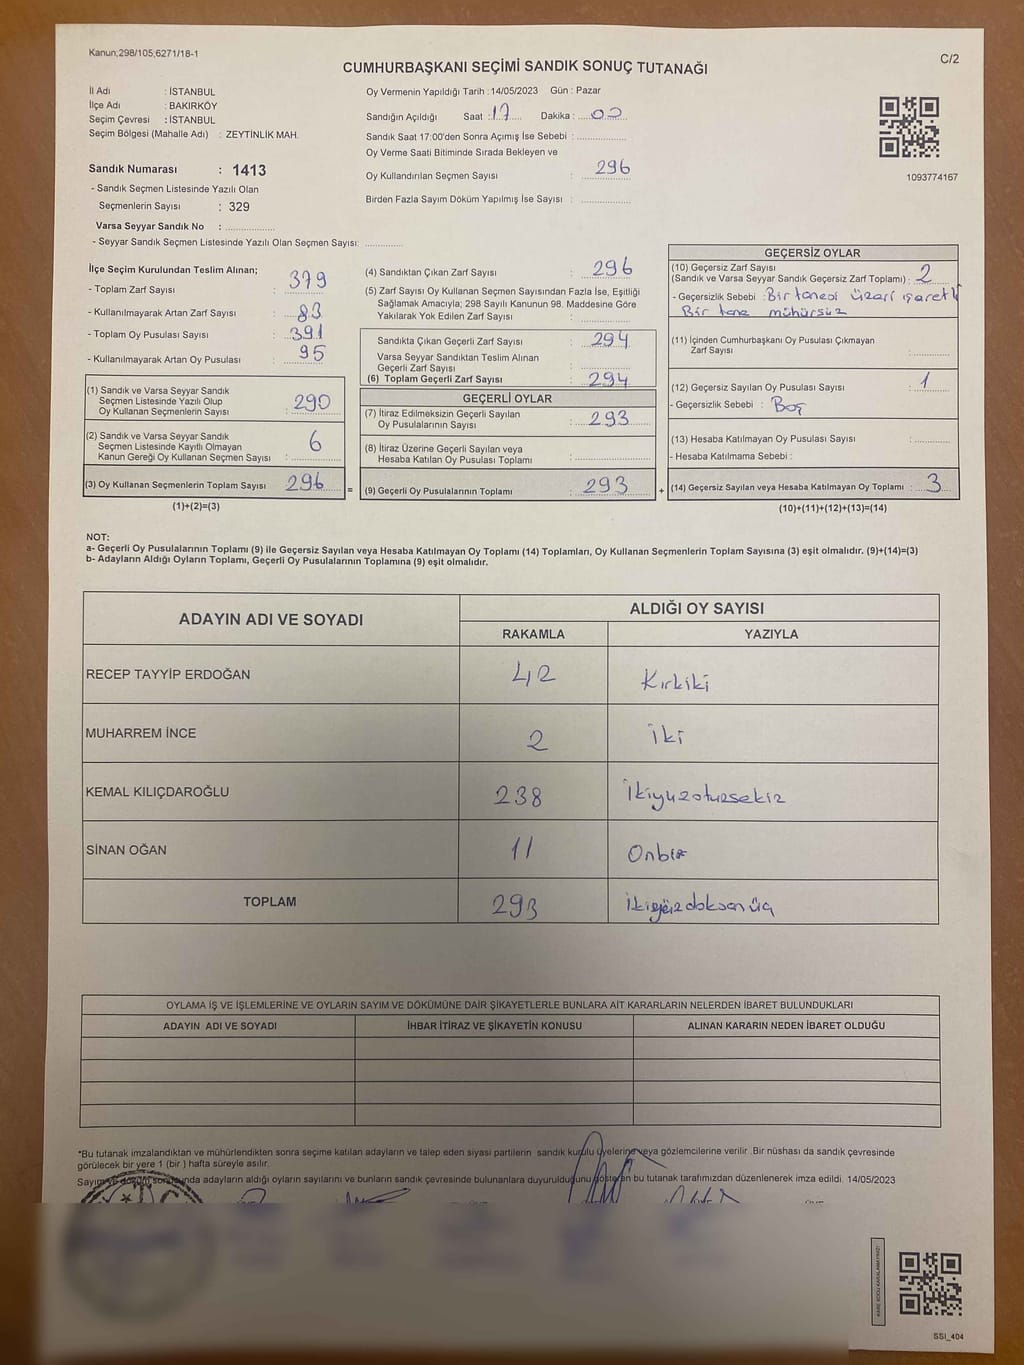 Kanun;298/105;6271/18-1
C/2
CUMHURBAŞKANI SEÇİMİ SANDIK SONUÇ TUTANAĞI
İl Adı : İSTANBUL
İlçe Adı : BAKIRKÖY
Seçim Çevresi : İSTANBUL
Seçim Bölgesi (Mahalle Adı) : ZEYTİNLİK MAH.
Sandık Numarası : 1413
- Sandık Seçmen Listesinde Yazılı Olan
Seçmenlerin Sayısı : 329
Varsa Seyyar Sandık No :
- Seyyar Sandık Seçmen Listesinde Yazılı Olan Seçmen Sayısı:
Oy Vermenin Yapıldığı Tarih : 14/05/2023 Gün : Pazar
Sandığın Açıldığı Saat : 17 Dakika : 02
Sandık Saat 17:00'den Sonra Açımış İse Sebebi :
Oy Verme Saati Bitiminde Sırada Bekleyen ve
Oy Kullandırılan Seçmen Sayısı : 296
Birden Fazla Sayım Döküm Yapılmış İse Sayısı :
1093774167
İlçe Seçim Kurulundan Teslim Alınan;
- Toplam Zarf Sayısı : 379
- Kullanılmayarak Artan Zarf Sayısı : 83
- Toplam Oy Pusulası Sayısı : 391
- Kullanılmayarak Artan Oy Pusulası : 95
(1) Sandık ve Varsa Seyyar Sandık
Seçmen Listesinde Yazılı Olup
Oy Kullanan Seçmenlerin Sayısı : 290
(2) Sandık ve Varsa Seyyar Sandık
Seçmen Listesinde Kayıtlı Olmayan
Kanun Gereği Oy Kullanan Seçmen Sayısı : 6
(3) Oy Kullanan Seçmenlerin Toplam Sayısı 296 =
(1)+(2)=(3)
(4) Sandıktan Çıkan Zarf Sayısı : 296
(5) Zarf Sayısı Oy Kullanan Seçmen Sayısından Fazla İse, Eşitliği
Sağlamak Amacıyla; 298 Sayılı Kanunun 98. Maddesine Göre
Yakılarak Yok Edilen Zarf Sayısı :
Sandıkta Çıkan Geçerli Zarf Sayısı : 294
Varsa Seyyar Sandıktan Teslim Alınan
Geçerli Zarf Sayısı :
(6) Toplam Geçerli Zarf Sayısı : 294
GEÇERLİ OYLAR
(7) İtiraz Edilmeksizin Geçerli Sayılan
Oy Pusulalarının Sayısı : 293
(8) İtiraz Üzerine Geçerli Sayılan veya
Hesaba Katılan Oy Pusulası Toplamı :
(9) Geçerli Oy Pusulalarının Toplamı : 293 +
GEÇERSİZ OYLAR
(10) Geçersiz Zarf Sayısı
(Sandık ve Varsa Seyyar Sandık Geçersiz Zarf Toplamı) : 2
- Geçersizlik Sebebi : Bir tanesi üzeri işaretli
Bir tane mühürsüz
(11) İçinden Cumhurbaşkanı Oy Pusulası Çıkmayan
Zarf Sayısı :
(12) Geçersiz Sayılan Oy Pusulası Sayısı : 1
- Geçersizlik Sebebi : Boş
(13) Hesaba Katılmayan Oy Pusulası Sayısı :
- Hesaba Katılmama Sebebi :
(14) Geçersiz Sayılan veya Hesaba Katılmayan Oy Toplamı : 3
(10)+(11)+(12)+(13)=(14)
NOT:
a- Geçerli Oy Pusulalarının Toplamı (9) ile Geçersiz Sayılan veya Hesaba Katılmayan Oy Toplamı (14) Toplamları, Oy Kullanan Seçmenlerin Toplam Sayısına (3) eşit olmalıdır. (9)+(14)=(3)
b- Adayların Aldığı Oyların Toplamı, Geçerli Oy Pusulalarının Toplamına (9) eşit olmalıdır.
ADAYIN ADI VE SOYADI ALDIĞI OY SAYISI
RAKAMLA YAZIYLA
RECEP TAYYİP ERDOĞAN 42 Kırkiki
MUHARREM İNCE 2 iki
KEMAL KILIÇDAROĞLU 238 ikiyüzotuzsekiz
SİNAN OĞAN 11 Onbir
TOPLAM 293 ikiyüzdoksanüç
OYLAMA İŞ VE İŞLEMLERİNE VE OYLARIN SAYIM VE DÖKÜMÜNE DAİR ŞİKAYETLERLE BUNLARA AİT KARARLARIN NELERDEN İBARET BULUNDUKLARI
ADAYIN ADI VE SOYADI İHBAR İTİRAZ VE ŞİKAYETİN KONUSU ALINAN KARARIN NEDEN İBARET OLDUĞU
*Bu tutanak imzalandıktan ve mühürlendikten sonra seçime katılan adayların ve talep eden siyasi partilerin sandık kurulu üyelerine veya gözlemcilerine verilir .Bir nüshası da sandık çevresinde
görülecek bir yere 1 (bir ) hafta süreyle asılır.
Sayım ve döküm sonucunda adayların aldığı oyların sayılarını ve bunların sandık çevresinde bulunanlara duyurulduğunu gösteren bu tutanak tarafımızdan düzenlenerek imza edildi. 14/05/2023
SSI_404